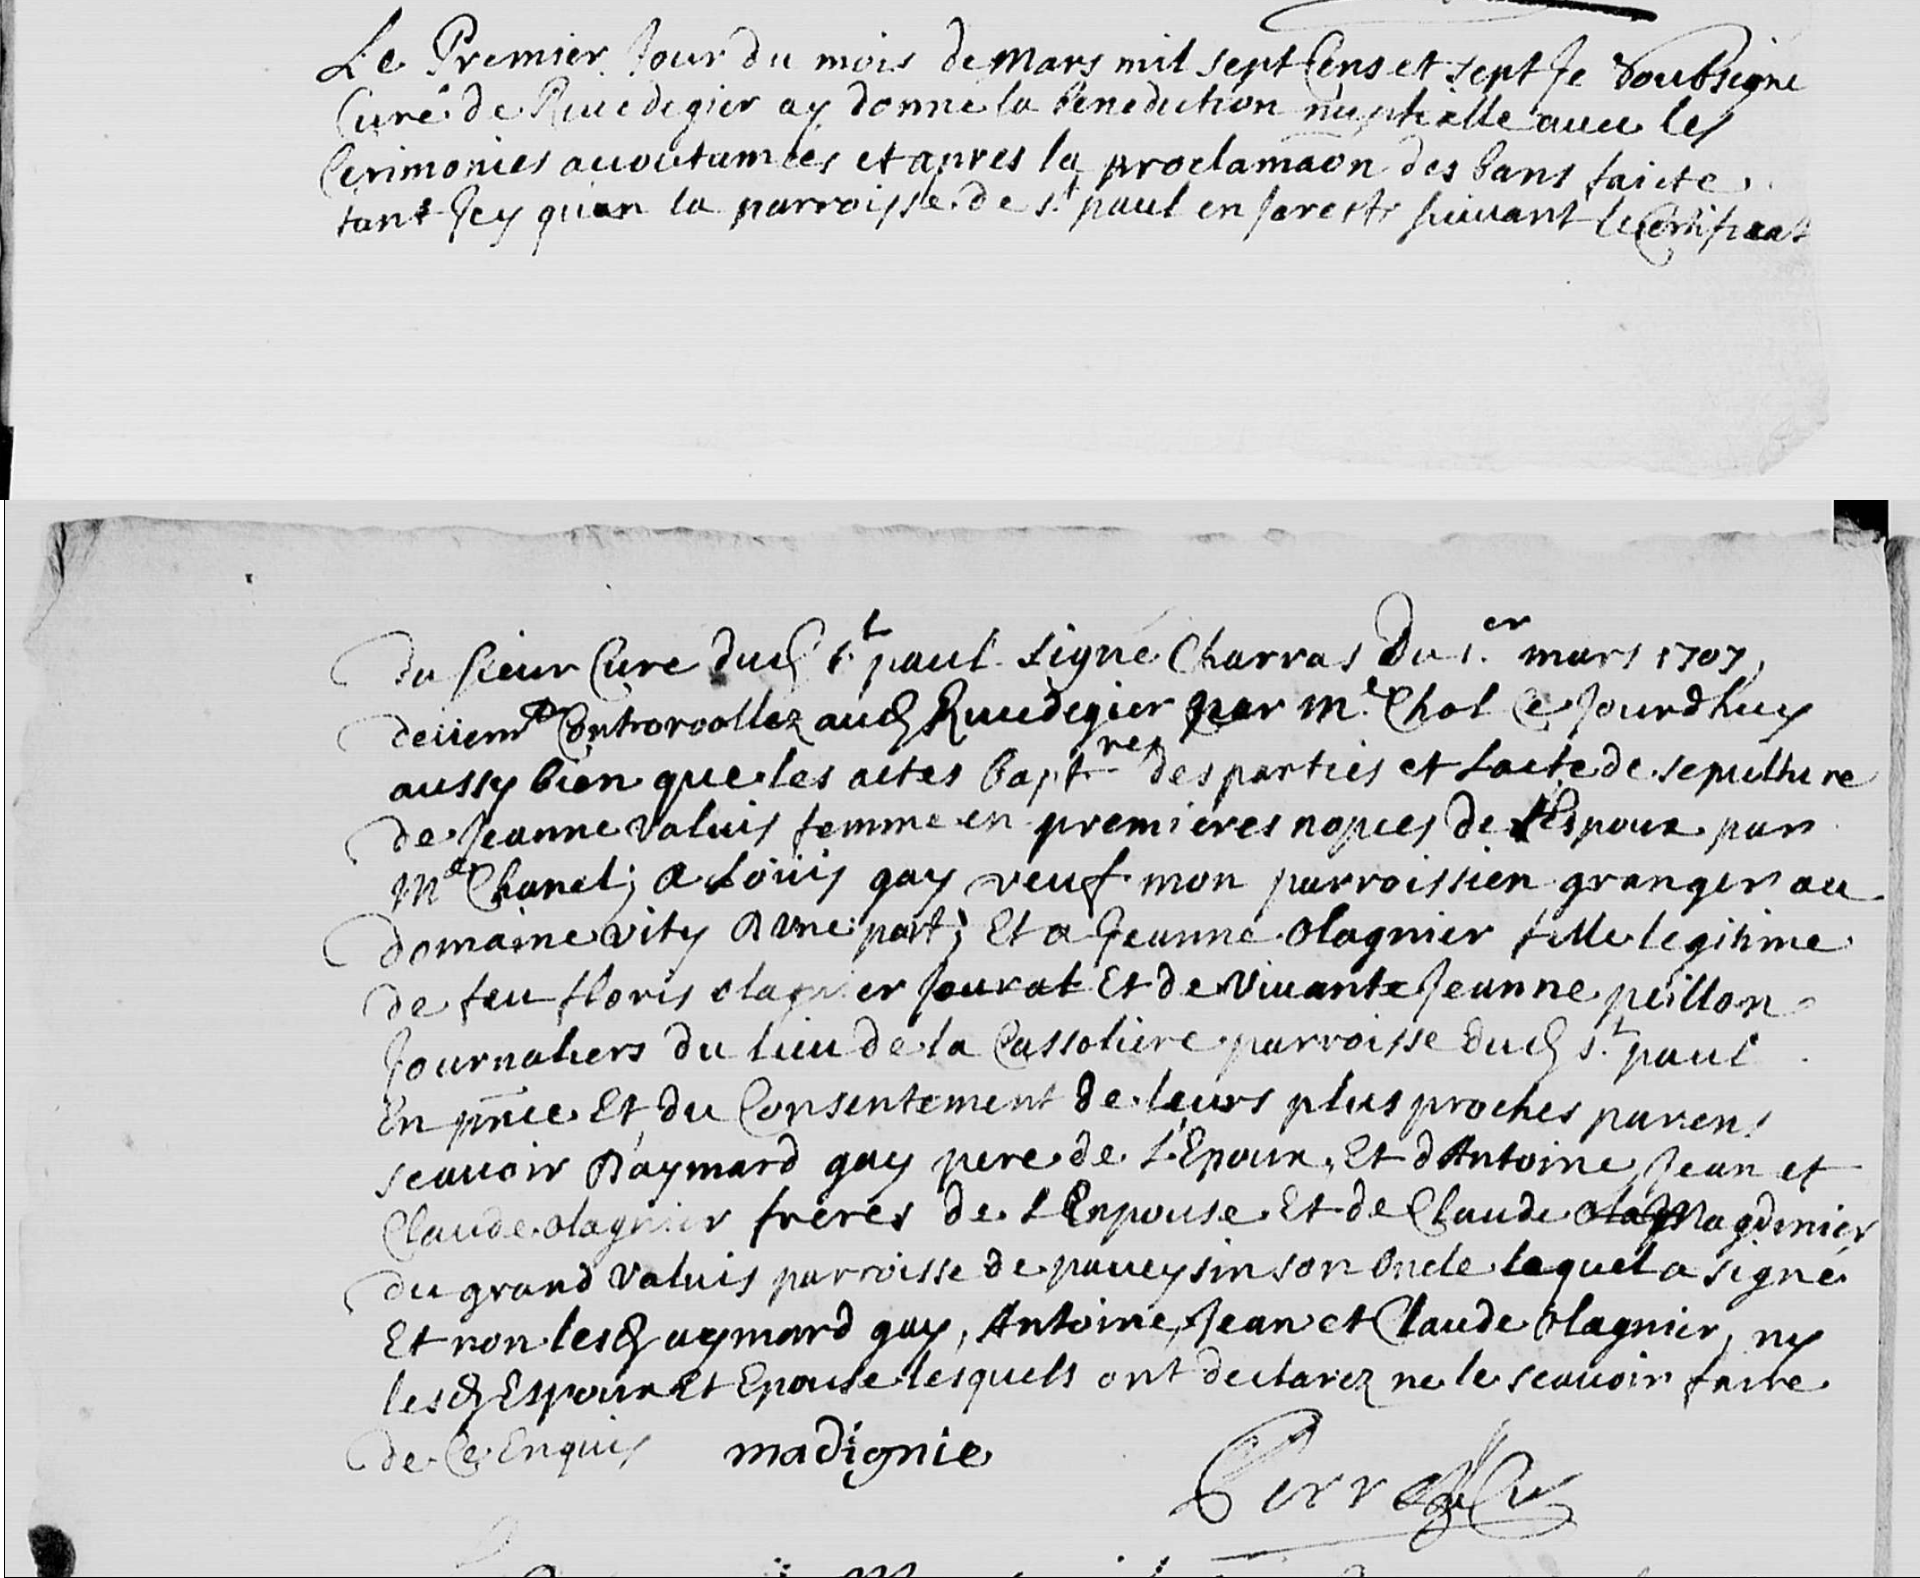 Le Premier Jour du mois de Mars mil sept Cens et sept Je Soubsigne
Curé de Riuedegier ay donné la benediction nuptialle auec les
Cerimonies acoutumées et apres la proclamaon des bans faicte
tant Jcy quen la parroisse de st paul en forests suiuant le Certificat
du sieur Cure dud st paul signé Charras Du 1.er mars 1707,
deüemt Controrollez aud Riuedegier par me Chol Ce Jourdhuy
aussy bien que les actes baptres des parties et lacte de sepulture
de Jeanne Valuis femme en premieres nopces de lEspoux par
Me Chanel; a Loüis gay veuf mon parroissien granger au
domaine vity dune part; Et a Jeanne Olagnier fille legitime
de feu floris olagnier Jourat Et de Viuante Jeanne peillon
Journaliers du lieu de la Cassoliere parroisse dud st paul
En pnce Et du Consentement de leurs plus proches parens
scauoir Daymard gay pere de l'Epoux, Et dAntoine, Jean et
Claude olagnier freres de lEnpouse Et de Claude Magdinier
du grand Valuis parroisse de paueysin son Oncle lequel a signé
Et non lesd aymard gay, Antoine, Jean et Claude Olagnier, ny
lesd Espoux Et Epouse lesquels ont declarez ne le scauoir faire
de Ce Enquis madignie